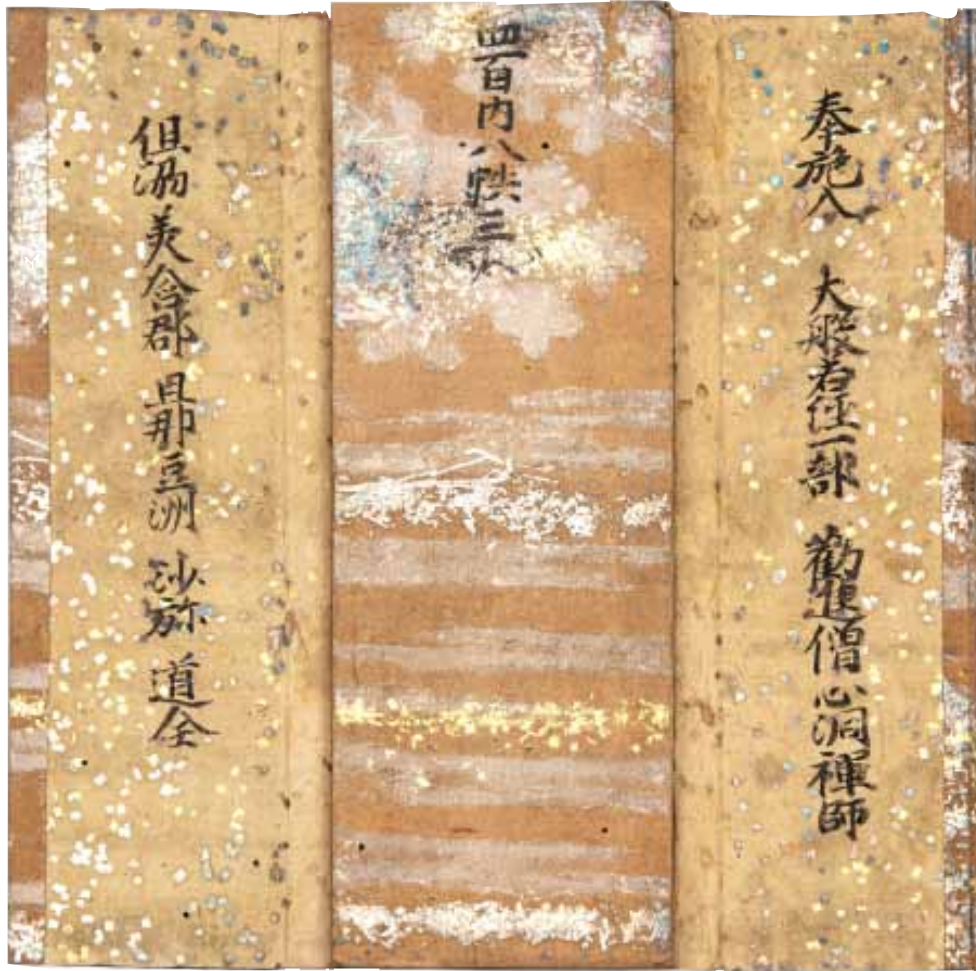 奉施入 大般若経一部 勧進僧心洞禅師
四百内八帙三
但洲美含郡 旦那豆洲 沙弥 道全